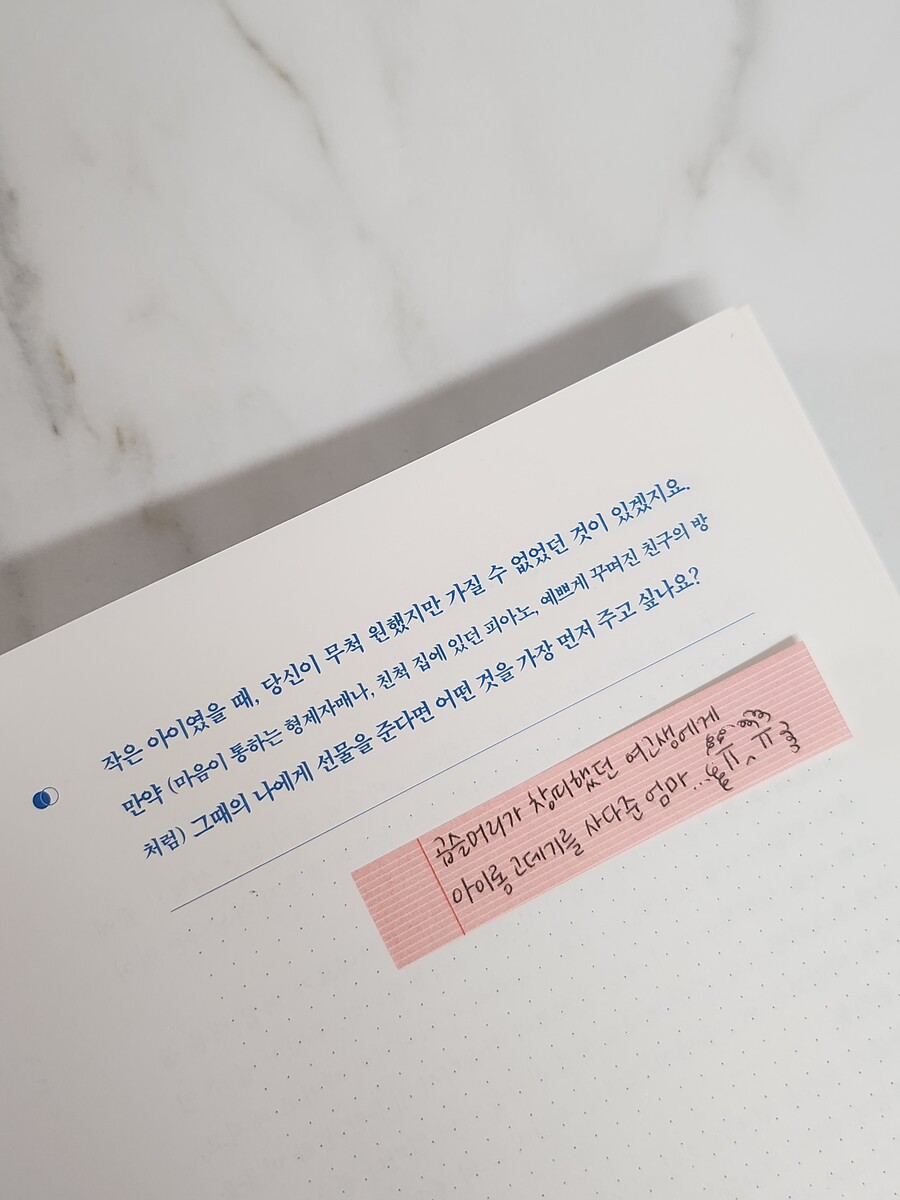 작은 아이였을 때, 당신이 무척 원했지만 가질 수 없었던 것이 있겠지요.
만약 (마음이 통하는 형제자매나, 친척 집에 있던 피아노, 예쁘게 꾸며진 친구의 방
처럼) 그때의 나에게 선물을 준다면 어떤 것을 가장 먼저 주고 싶나요?
곱슬머리가 창피했던 여고생에게
아이롱 고데기를 사다준 엄마... ㅠㅠ